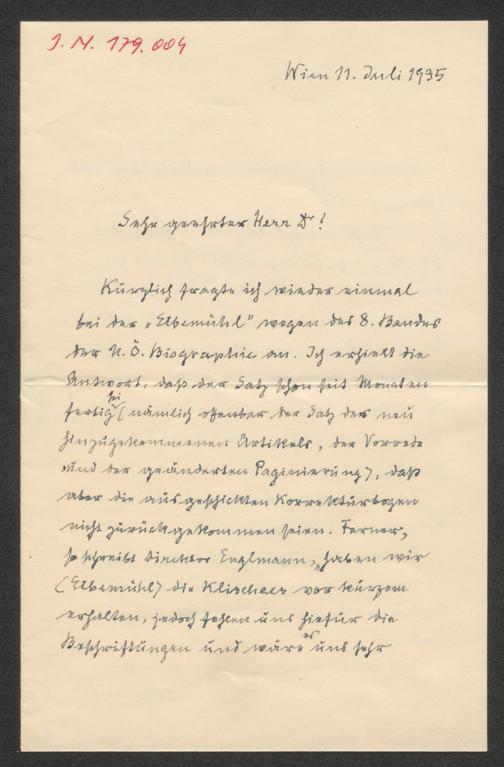 J. N. 179.004
Wien 11. Juli 1935
Sehr geehrter Herr Dr!
Kürzlich fragte ich wieder einmal
bei der „Elbemühl" wegen des 8. Bandes
der N. Ö. Biographie an. Ich erhielt die
Antwort, daß der Satz schon seit Monaten
fertig sei (nämlich offenbar der Satz des neu
hinzugekommenen Artikels, der Vorrede
und der geänderten Paginierung), daß
aber die ausgeschickten Korrekturbogen
nicht zurückgekommen seien. Ferner,
so schreibt Direktor Englmann, „haben wir
(Elbemühl) die Klischees vor kurzem
erhalten, jedoch fehlen uns hiefür die
Beschriftungen und wäre es uns sehr